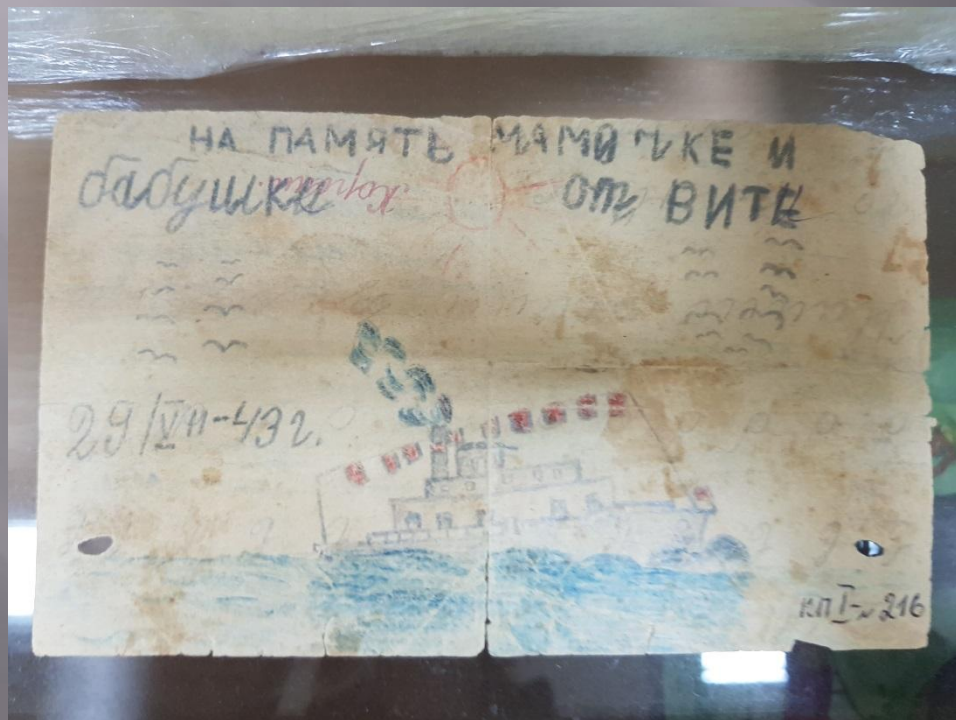 НА ПАМЯТЬ МАМОЧКЕ И
бабушке от ВИТИ
29/VII-43 г.
КП I-№216